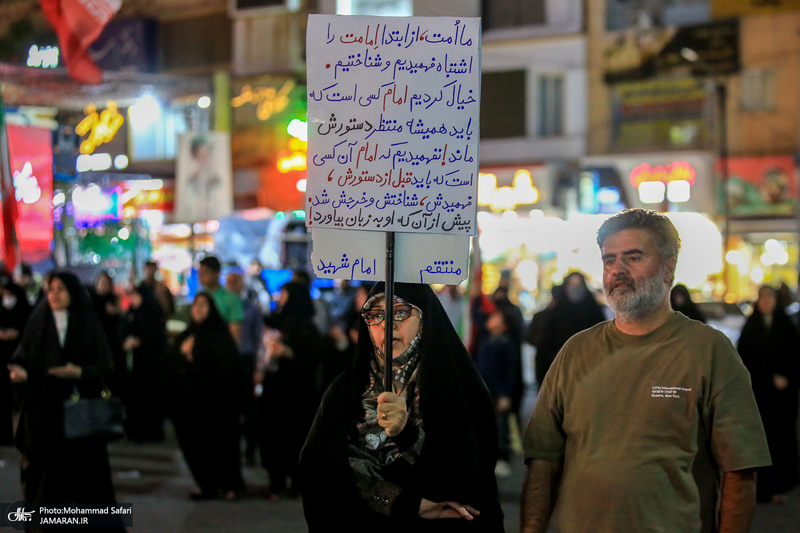 ما اُمت، از ابتدا اِمامت را
اشتباه فهمیدیم و شناختیم.
خیال کردیم امام کسی است که
باید همیشه منتظر دستورش
ماند! نفهمیدیم که امام آن کسی
است که باید قبل از دستورش،
فهمیدش، شناختش و خرجش شد.
پیش از آن که او به زبان بیاورد!
منتقم امام شهید
JFK International Airport
Queens, New York
Photo:Mohammad Safari
JAMARAN.IR